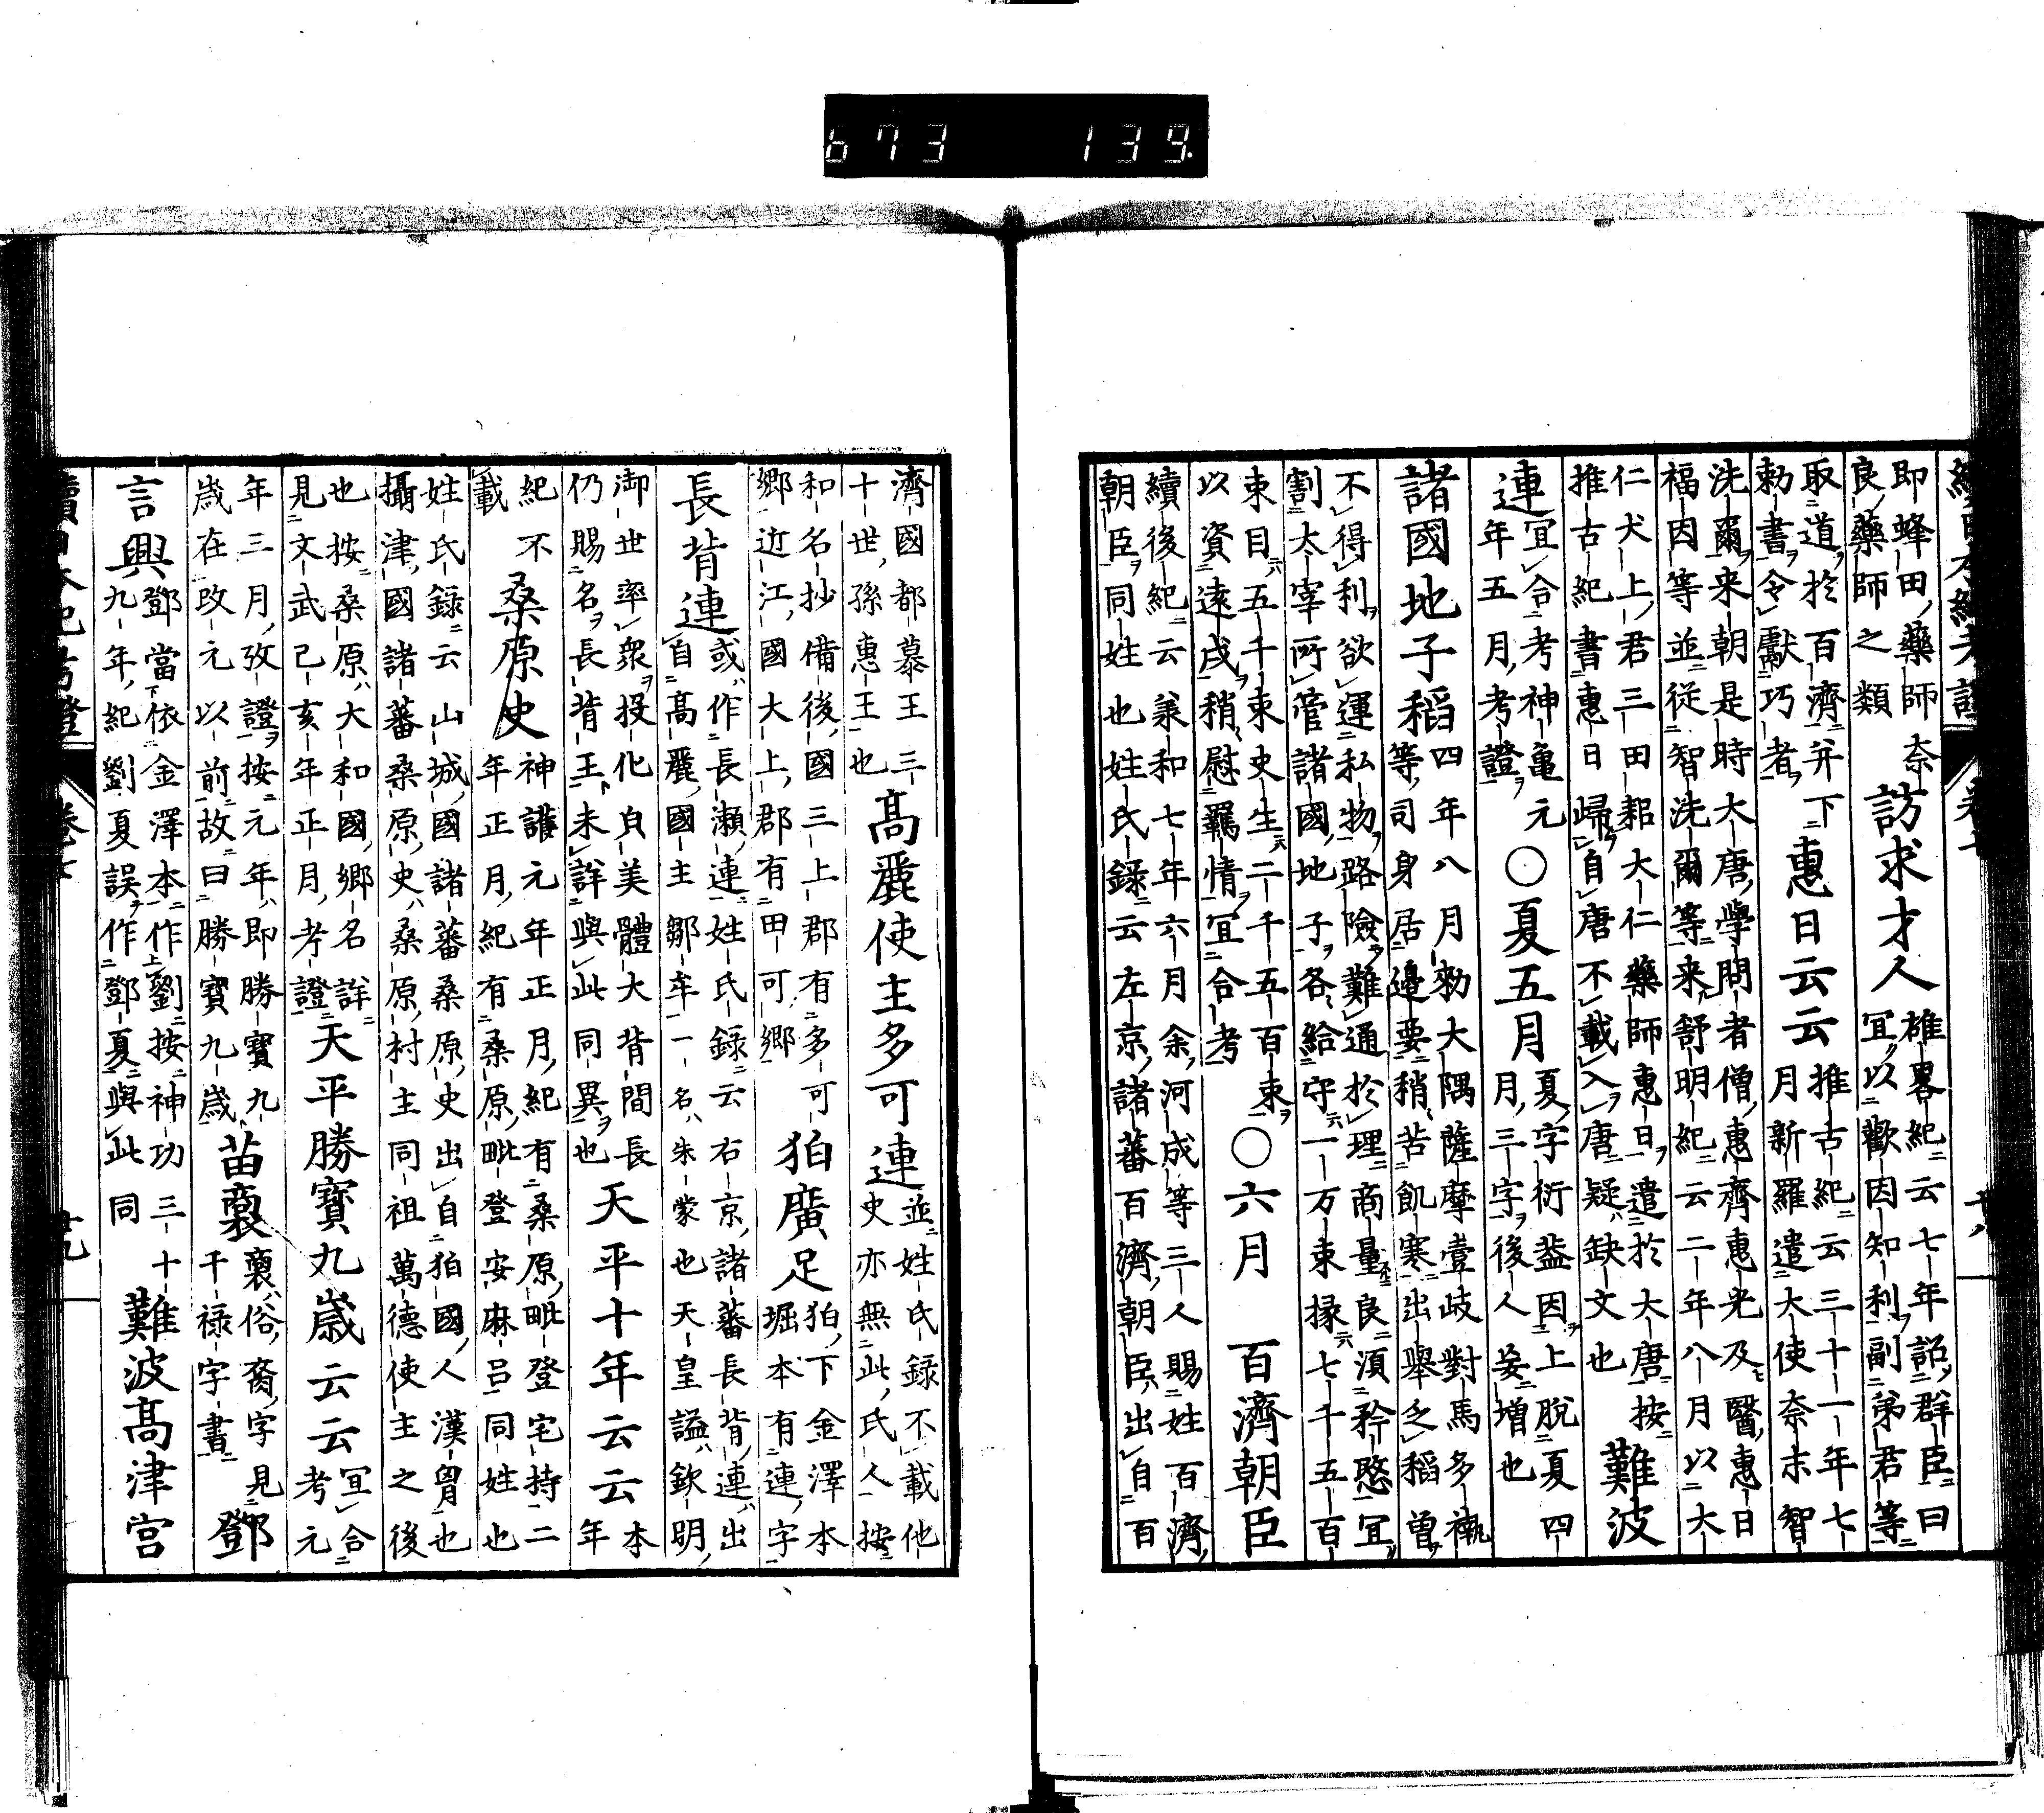 673 139.
即蜂田藥師奈
良藥師之類
訪求才人
雄畧紀云七年詔群臣曰
冝以歡因知利副弟君等
取道於百濟并下
勅書令獻巧者
惠日云云
推古紀云三十一年七
月新羅遣大使奈末智
洗爾来朝是時大唐學問者僧惠齊惠光及醫惠日
福因等並從智洗爾等来舒明紀云二年八月以大
仁犬上君三田耜大仁藥師惠日遣於大唐按
推古紀書惠日歸自唐不載入唐疑缺文也
難波
連
冝合考神亀元
年五月考證
○夏五月
夏字衍盖因上脫夏四
月三字後人妄增也
諸國地子稻
四年八月勅大隅薩摩壹岐對馬多褹
等司身居邊要稍苦飢寒出舉乏稻曾
不得利欲運私物路險難通於理商量良湏矜愍冝
割大宰所管諸國地子各給守一万束掾七千五百
束目五千束史生二千五百束
以資遠戍稍慰羈情冝合考
○六月
百濟朝臣
續後紀云兼和七年六月余河成等三人賜姓百濟
朝臣同姓也姓氏錄云左京諸蕃百濟朝臣出自百
濟國都慕王三
十世孫惠王也
高麗使主多可連
並姓氏錄不載他
史亦無此氏人按
和名抄備後國三上郡有多可
鄉近江國大上郡有田可鄉
狛廣足
狛下金澤本
堀本有連字
長背連
或作長瀬連姓氏錄云右京諸蕃長背連出
自高麗國主鄒牟一名朱蒙也天皇謚欽明
御世率衆投化皃美體大背間長
仍賜名長背王未詳與此同異也
天平十年云云
本
年
紀不
載
桒原史
神護元年正月紀有桑原毗登宅持二
年正月紀有桑原毗登安麻呂同姓也
姓氏錄云山城國諸蕃桑原史出自狛國人漢冑也
攝津國諸蕃桑原史桑原村主同祖萬德使主之後
也按桑原大和國鄉名詳
見文武己亥年正月考證
天平勝寶九歲云云
冝合
考元
年三月攷證按元年即勝寶九
歲在改元以前故曰勝寶九歲
苗裏
裏俗裔字見
干禄字書
鄧
言興
鄧當依金澤本作劉按神功三十
九年紀劉夏誤作鄧夏與此同
難波髙津宫
卷七